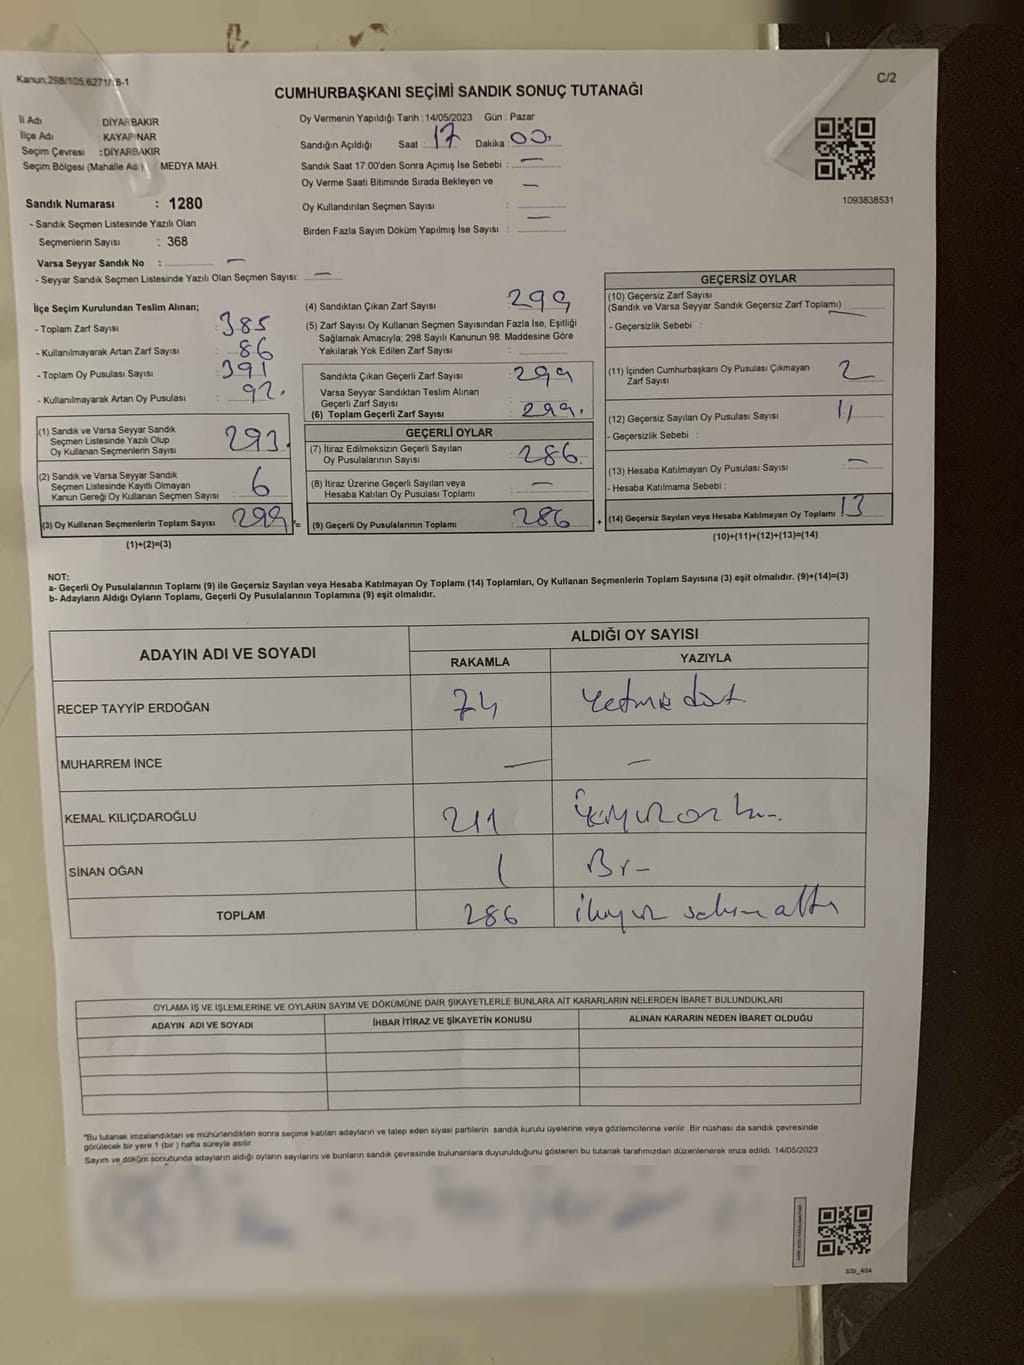 Kanun:298/105,6271/18-1
C/2
CUMHURBAŞKANI SEÇİMİ SANDIK SONUÇ TUTANAĞI
İl Adı : DİYARBAKIR
İlçe Adı : KAYAPINAR
Seçim Çevresi : DİYARBAKIR
Seçim Bölgesi (Mahalle Adı) MEDYA MAH.
Oy Vermenin Yapıldığı Tarih : 14/05/2023 Gün : Pazar
Sandığın Açıldığı Saat : 17 Dakika : 00
Sandık Saat 17:00'den Sonra Açımış İse Sebebi : —
Oy Verme Saati Bitiminde Sırada Bekleyen ve —
Oy Kullandırılan Seçmen Sayısı :
Birden Fazla Sayım Döküm Yapılmış İse Sayısı : —
1093838531
Sandık Numarası : 1280
- Sandık Seçmen Listesinde Yazılı Olan
Seçmenlerin Sayısı : 368
Varsa Seyyar Sandık No : —
- Seyyar Sandık Seçmen Listesinde Yazılı Olan Seçmen Sayısı: —
İlçe Seçim Kurulundan Teslim Alınan;
- Toplam Zarf Sayısı : 385
- Kullanılmayarak Artan Zarf Sayısı : 86
- Toplam Oy Pusulası Sayısı : 391
- Kullanılmayarak Artan Oy Pusulası : 92.
(1) Sandık ve Varsa Seyyar Sandık
Seçmen Listesinde Yazılı Olup
Oy Kullanan Seçmenlerin Sayısı : 293.
(2) Sandık ve Varsa Seyyar Sandık
Seçmen Listesinde Kayıtlı Olmayan
Kanun Gereği Oy Kullanan Seçmen Sayısı : 6
(3) Oy Kullanan Seçmenlerin Toplam Sayısı : 299 =
(1)+(2)=(3)
(4) Sandıktan Çıkan Zarf Sayısı : 299
(5) Zarf Sayısı Oy Kullanan Seçmen Sayısından Fazla İse, Eşitliği
Sağlamak Amacıyla; 298 Sayılı Kanunun 98. Maddesine Göre
Yakılarak Yok Edilen Zarf Sayısı :
Sandıkta Çıkan Geçerli Zarf Sayısı : 299
Varsa Seyyar Sandıktan Teslim Alınan
Geçerli Zarf Sayısı :
(6) Toplam Geçerli Zarf Sayısı : 299.
GEÇERLİ OYLAR
(7) İtiraz Edilmeksizin Geçerli Sayılan
Oy Pusulalarının Sayısı : 286.
(8) İtiraz Üzerine Geçerli Sayılan veya
Hesaba Katılan Oy Pusulası Toplamı : —
(9) Geçerli Oy Pusulalarının Toplamı : 286 +
GEÇERSİZ OYLAR
(10) Geçersiz Zarf Sayısı
(Sandık ve Varsa Seyyar Sandık Geçersiz Zarf Toplamı) —
- Geçersizlik Sebebi :
(11) İçinden Cumhurbaşkanı Oy Pusulası Çıkmayan
Zarf Sayısı : 2
(12) Geçersiz Sayılan Oy Pusulası Sayısı : 11
- Geçersizlik Sebebi :
(13) Hesaba Katılmayan Oy Pusulası Sayısı : —
- Hesaba Katılmama Sebebi :
(14) Geçersiz Sayılan veya Hesaba Katılmayan Oy Toplamı 13
(10)+(11)+(12)+(13)=(14)
NOT:
a- Geçerli Oy Pusulalarının Toplamı (9) ile Geçersiz Sayılan veya Hesaba Katılmayan Oy Toplamı (14) Toplamları, Oy Kullanan Seçmenlerin Toplam Sayısına (3) eşit olmalıdır. (9)+(14)=(3)
b- Adayların Aldığı Oyların Toplamı, Geçerli Oy Pusulalarının Toplamına (9) eşit olmalıdır.
ADAYIN ADI VE SOYADI
ALDIĞI OY SAYISI
RAKAMLA YAZIYLA
RECEP TAYYİP ERDOĞAN 74 Yetmiş dört
MUHARREM İNCE — —
KEMAL KILIÇDAROĞLU 211 İkiyüz on bir
SİNAN OĞAN 1 Bir
TOPLAM 286 ikiyüz seksen altı
OYLAMA İŞ VE İŞLEMLERİNE VE OYLARIN SAYIM VE DÖKÜMÜNE DAİR ŞİKAYETLERLE BUNLARA AİT KARARLARIN NELERDEN İBARET BULUNDUKLARI
ADAYIN ADI VE SOYADI İHBAR İTİRAZ VE ŞİKAYETİN KONUSU ALINAN KARARIN NEDEN İBARET OLDUĞU
"Bu tutanak imzalandıktan ve mühürlendikten sonra seçime katılan adayların ve talep eden siyasi partilerin sandık kurulu üyelerine veya gözlemcilerine verilir. Bir nüshası da sandık çevresinde
görülecek bir yere 1 (bir ) hafta süreyle asılır.
Sayım ve döküm sonucunda adayların aldığı oyların sayılarını ve bunların sandık çevresinde bulunanlara duyurulduğunu gösteren bu tutanak tarafımızdan düzenlenerek imza edildi. 14/05/2023
SSI_404